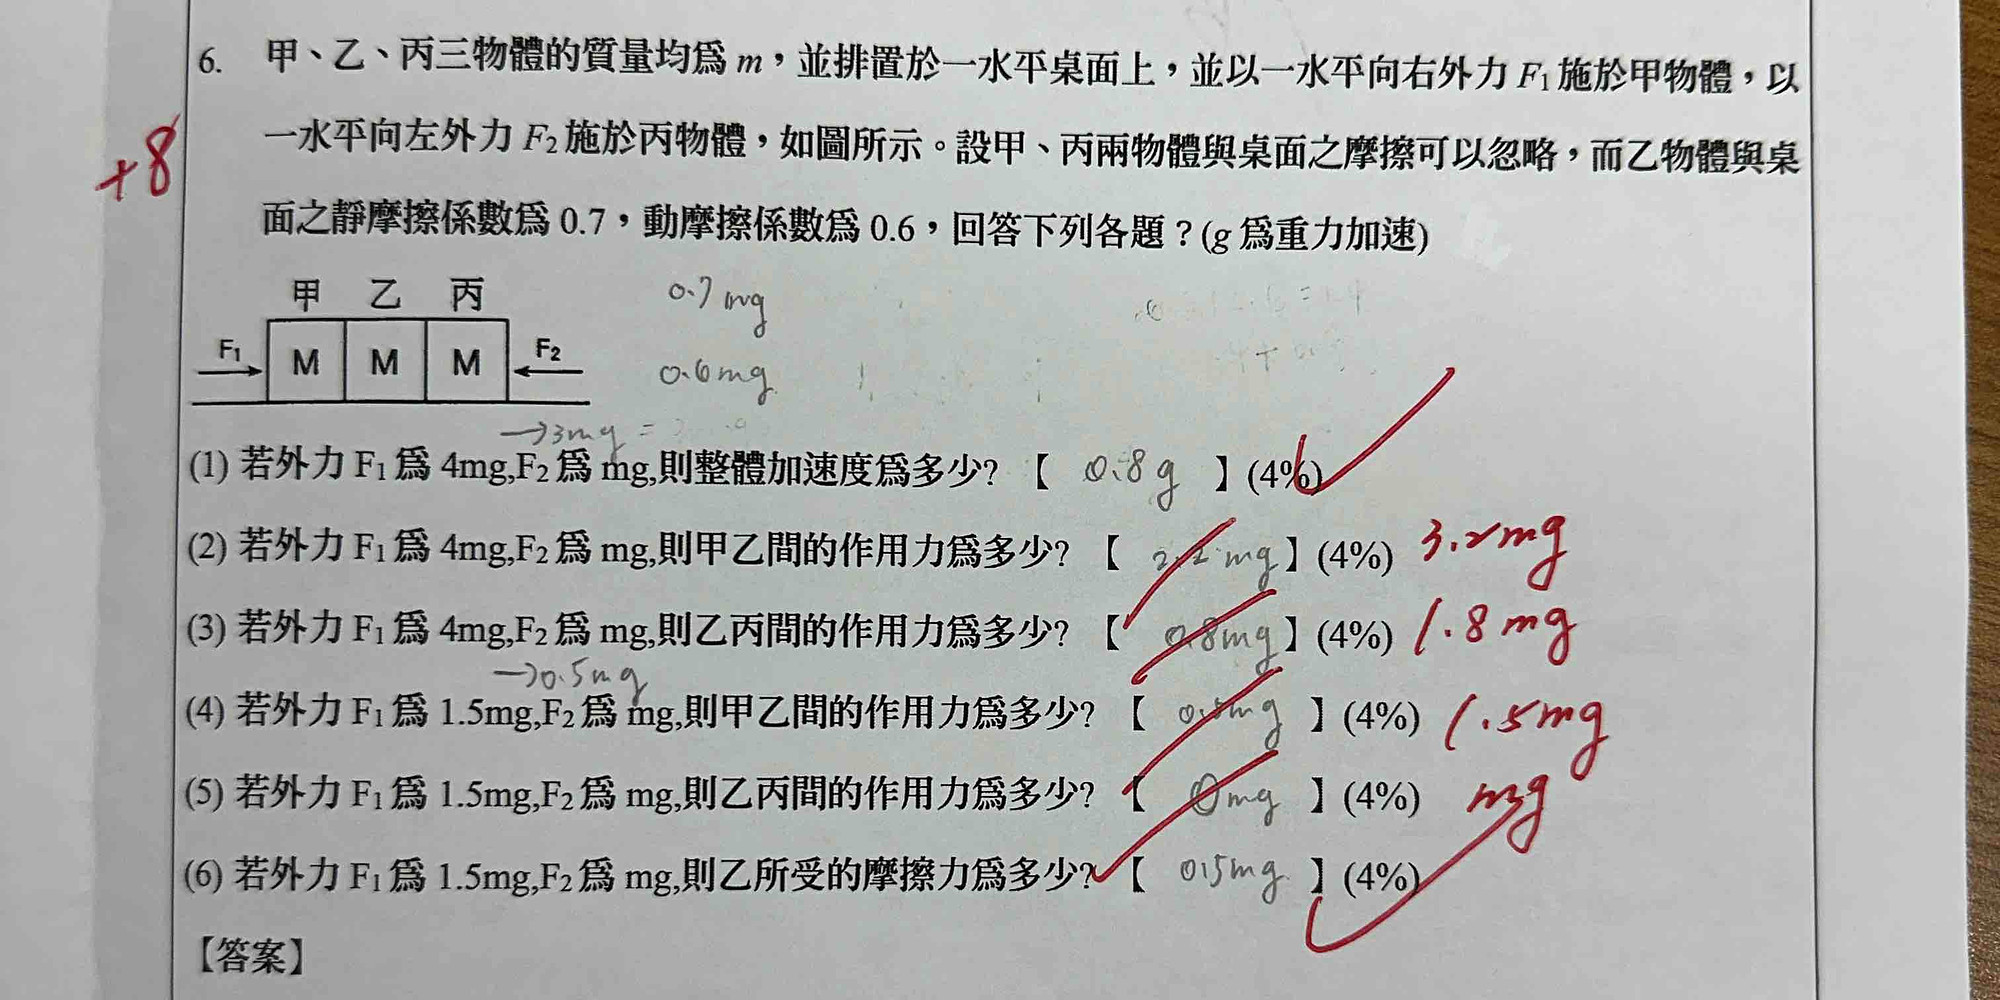 6. 甲、乙、丙三物體的質量均爲 m，並排置於一水平桌面上，並以一水平向右外力 F₁ 施於甲物體，以
一水平向左外力 F₂ 施於丙物體，如圖所示。設甲、丙兩物體與桌面之摩擦可以忽略，而乙物體與桌
+8
面之靜摩擦係數爲 0.7，動摩擦係數爲 0.6，回答下列各題？(g 爲重力加速)
甲 乙 丙
0.7 mg
F₁ M M M F₂
0.6mg
→3mg =
(1) 若外力 F₁ 爲 4mg,F₂ 爲 mg,則整體加速度爲多少? 【 0.8g 】(4%)
(2) 若外力 F₁ 爲 4mg,F₂ 爲 mg,則甲乙間的作用力爲多少? 【 2.2mg 】(4%) 3.2mg
(3) 若外力 F₁ 爲 4mg,F₂ 爲 mg,則乙丙間的作用力爲多少? 【 0.8mg 】(4%) 1.8mg
→0.5mg
(4) 若外力 F₁ 爲 1.5mg,F₂ 爲 mg,則甲乙間的作用力爲多少? 【 0.5mg 】(4%) 1.5mg
(5) 若外力 F₁ 爲 1.5mg,F₂ 爲 mg,則乙丙間的作用力爲多少? 【 0mg 】(4%) mg
(6) 若外力 F₁ 爲 1.5mg,F₂ 爲 mg,則乙所受的摩擦力爲多少? 【 0.5mg 】(4%)
【答案】